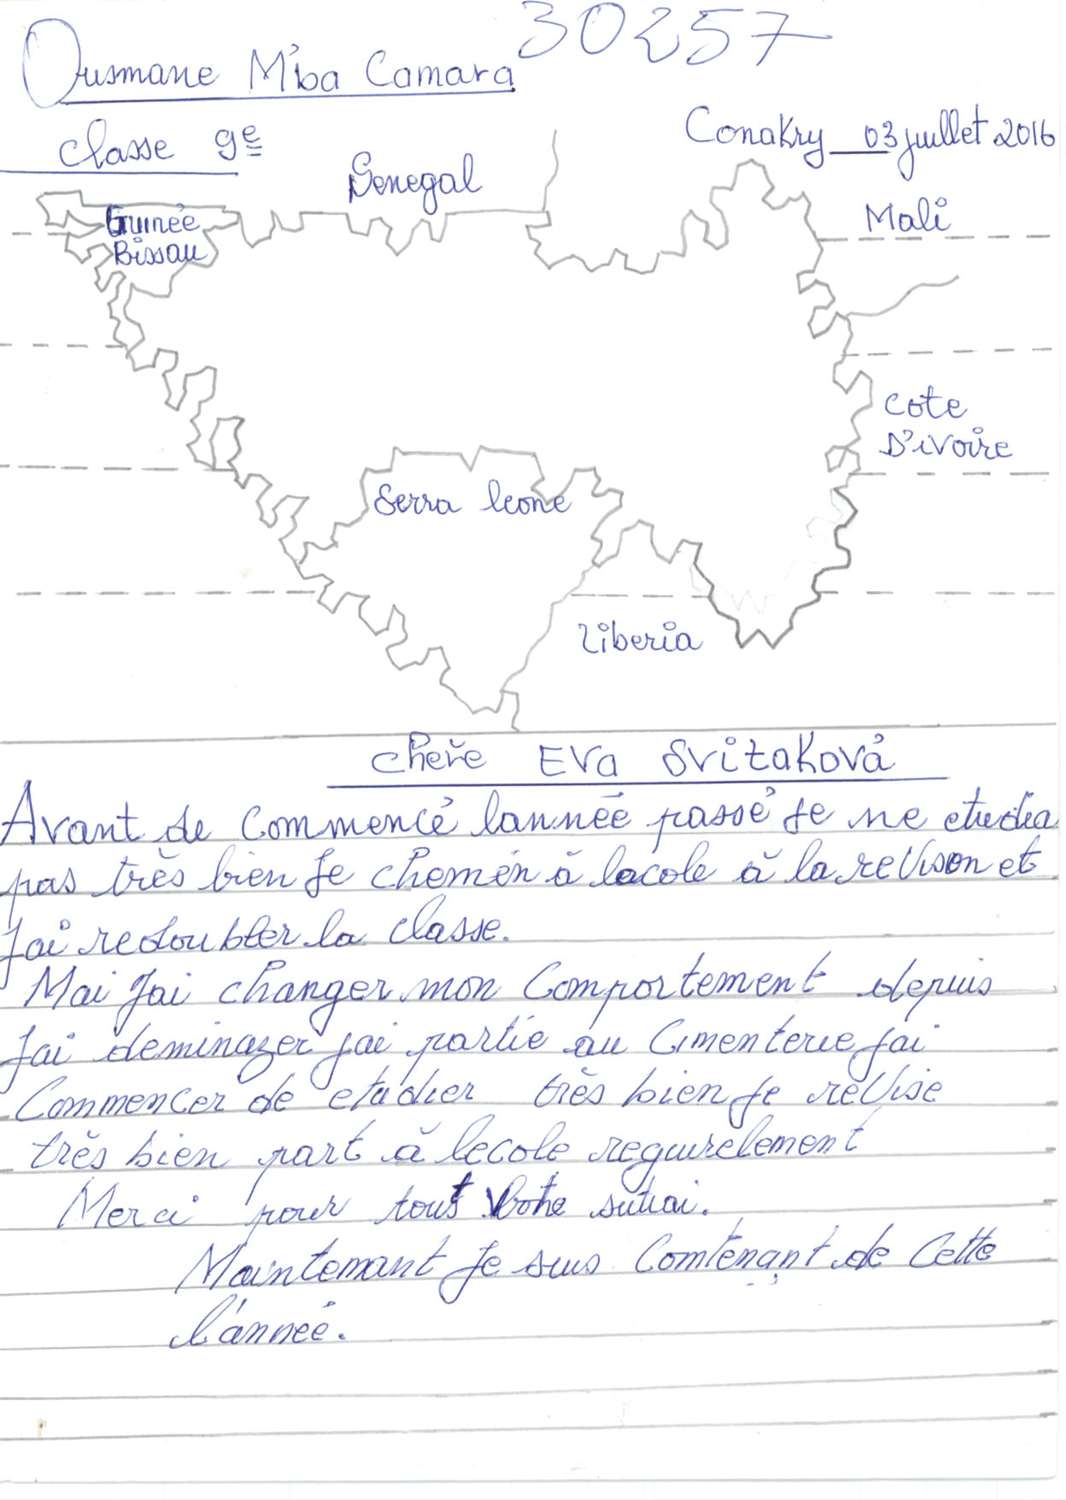 30257
Ousmane M'ba Camara
Classe 9e
Conakry_03 juillet 2016
Senegal
Mali
Guinée
Bissau
Cote
D'ivoire
Serra leone
Liberia
Chere EVa Svitaková
Avant de Commencé lannée passé Je ne etudia
pas très bien Je Chemén à lacole à la revison et
Jai redoubler la classe.
Mai Jai changer mon Comportement depuis
Jai deminazer jai partie au Cimenterie Jai
Commencer de etudier très bien Je revise
très bien part à lecole regurelement
Merci pour tout Votre
Maintemant Je suis Comtenant de Cette
l'année.